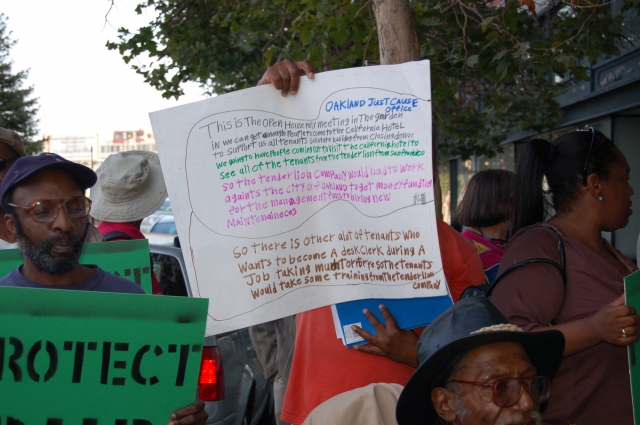 OAKLAND JUST CAUSE
Office
This is The Open House Meeting in The garden
in we can get enough People to come to the California HoTeL
to support us all Tenants
we going to have People coming to visit The california hotel to
see all of The Tenants from the Tenderlion from San francisco
so the tenderlion company would had to work
againts the city of oakland to get money funding
for the management
maintainences
So there is other alot of Tenants who
wants to become A desk Clerk during A
Job taking so the Tenants
would take some training from the Tenderlion
company
ENT
ROTECT